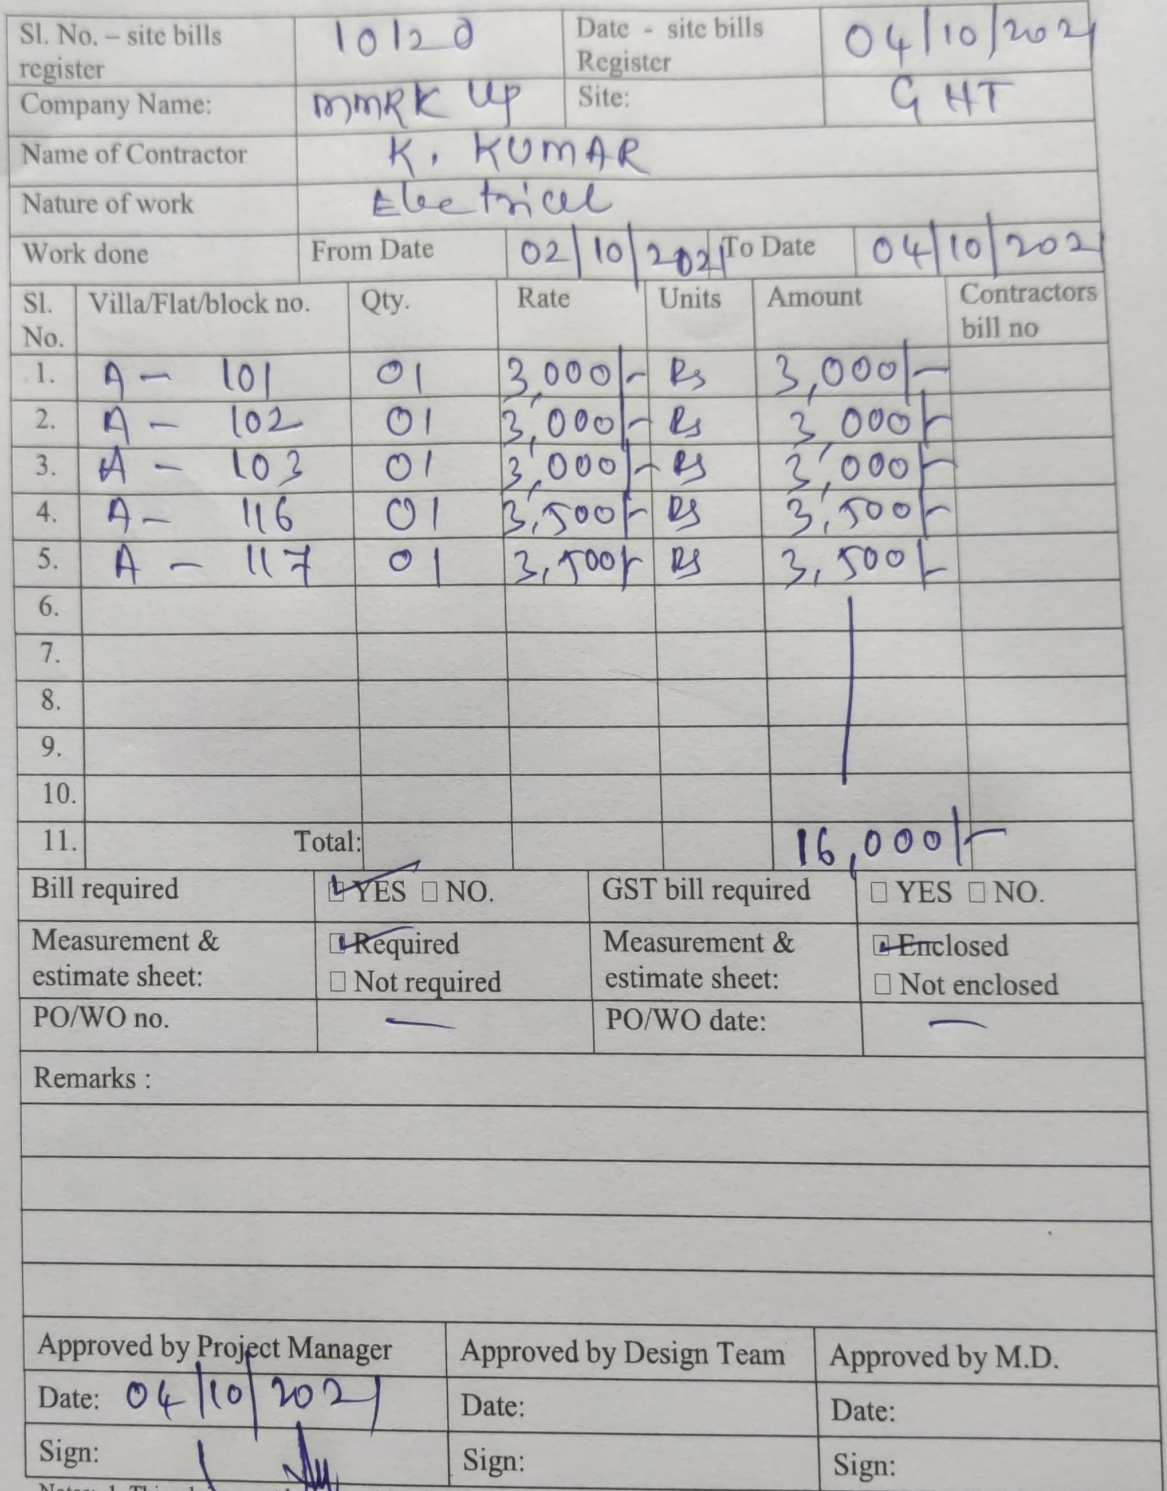 Sl. No. – site bills register 10120 Date - site bills Register 04/10/2021
Company Name: MMRK Up Site: GHT
Name of Contractor K. KUMAR
Nature of work Electrical
Work done From Date 02/10/2021 To Date 04/10/202
Sl. No. Villa/Flat/block no. Qty. Rate Units Amount Contractors bill no
1. A - 101 01 3,000/- Rs 3,000/-
2. A - 102 01 3,000/- Rs 3,000/-
3. A - 103 01 3,000/- Rs 3,000/-
4. A - 116 01 3,500/- Rs 3,500/-
5. A - 117 01 3,500/- Rs 3,500/-
6.
7.
8.
9.
10.
11. Total: 16,000/-
Bill required YES NO. GST bill required YES NO.
Measurement & estimate sheet: Required Not required Measurement & estimate sheet: Enclosed Not enclosed
PO/WO no. — PO/WO date: —
Remarks :
Approved by Project Manager Approved by Design Team Approved by M.D.
Date: 04/10/2021 Date: Date:
Sign: Sign: Sign: